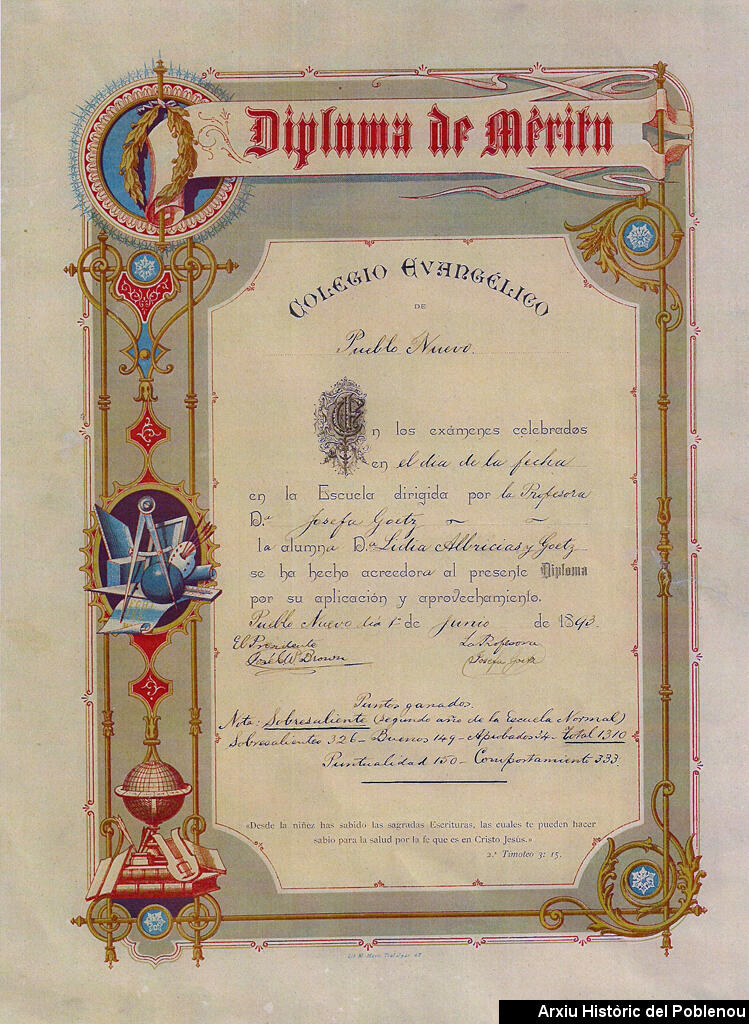 Diploma de Mérito
COLEGIO EVANGÉLICO
DE
Pueblo Nuevo.
En los exámenes celebrados
en el dia de la fecha
en la Escuela dirigida por la Profesora
D.ª Josefa Goetz ~ ~
la alumna D.ª Lidia Albricias y Goetz
se ha hecho acreedora al presente Diploma
por su aplicación y aprovechamiento.
Pueblo Nuevo dia 1º de Junio de 1893.
El Presidente La Profesora
José Wº Brown Josefa Goetz
Puntos ganados.
Nota: Sobresaliente (segundo año de la Escuela Normal)
Sobresalientes 326 - Buenos 149 - Aprobados 34 - total 1310
Puntualidad 150 - Comportamiento 333.
«Desde la niñez has sabido las sagradas Escrituras, las cuales te pueden hacer
sabio para la salud por la fe que es en Cristo Jesús.»
2.ª Timoteo 3: 15.
Arxiu Històric del Poblenou